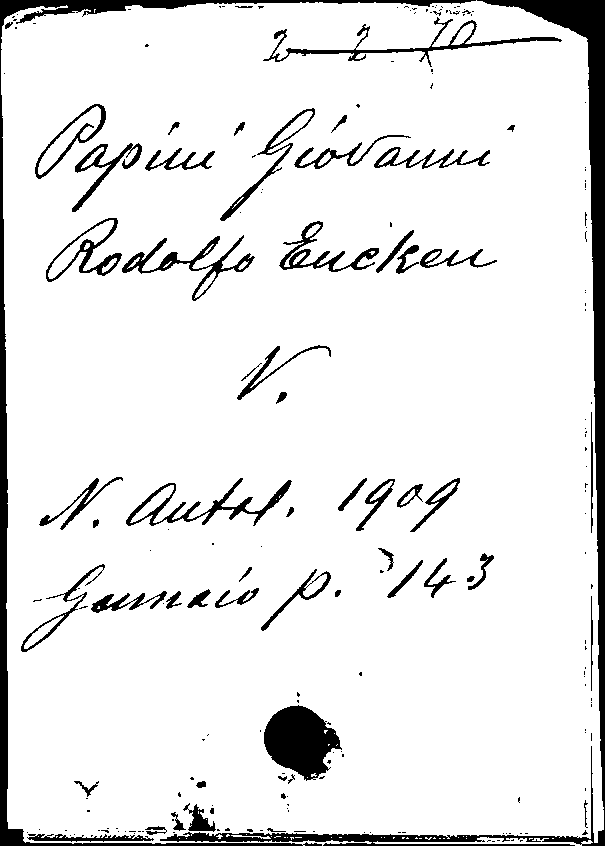 2 2 70
Papini Giovanni
Rodolfo Eucken
V.
N. Antol. 1909
Gennaio p. 143